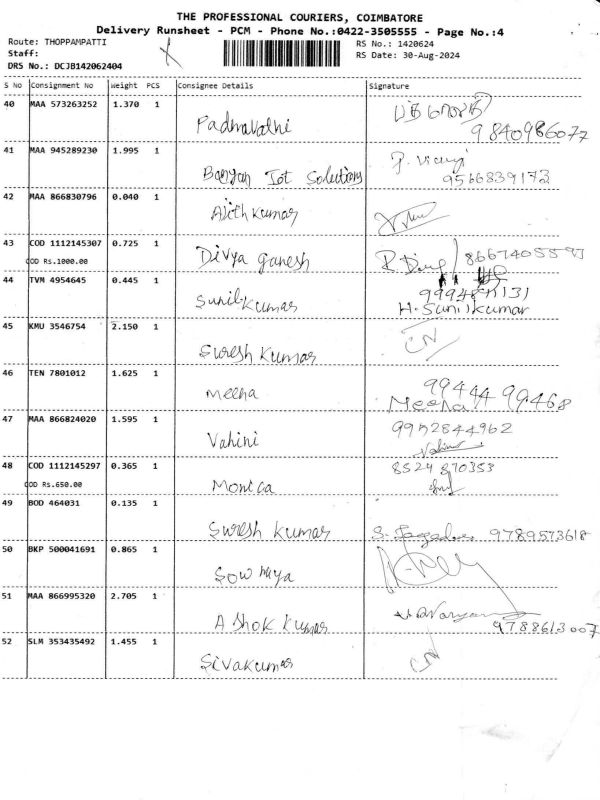 THE PROFESSIONAL COURIERS, COIMBATORE
Delivery Runsheet - PCM - Phone No.:0422-3505555 - Page No.:4
Route: THOPPAMPATTI RS No.: 1420624
Staff: RS Date: 30-Aug-2024
DRS No.: DCJB142062404
S No Consignment No Weight PCS Consignee Details Signature
40 MAA 573263252 1.370 1
Padmavathi 9840986077
41 MAA 945289230 1.995 1
Banyan Iot Solutions 9566839173
42 MAA 866830796 0.040 1
Ajith Kumar
43 COD 1112145307 0.725 1
COD Rs.1000.00 Divya ganesh
44 TVM 4954645 0.445 1
Sunil Kumar H. Sunilkumar
45 KMU 3546754 2.150 1
Suresh Kumar
46 TEN 7801012 1.625 1
Meena 99444 99468
Meena
47 MAA 866824020 1.595 1 9952844962
Vahini Vahini
48 COD 1112145297 0.365 1 8524 870353
COD Rs.650.00 Monica
49 BOD 464031 0.135 1
Suresh Kumar 9789573618
50 BKP 500041691 0.865 1
Sowmiya
51 MAA 866995320 2.705 1
Ashok Kumar 9788613007
52 SLM 353435492 1.455 1
Sivakumar